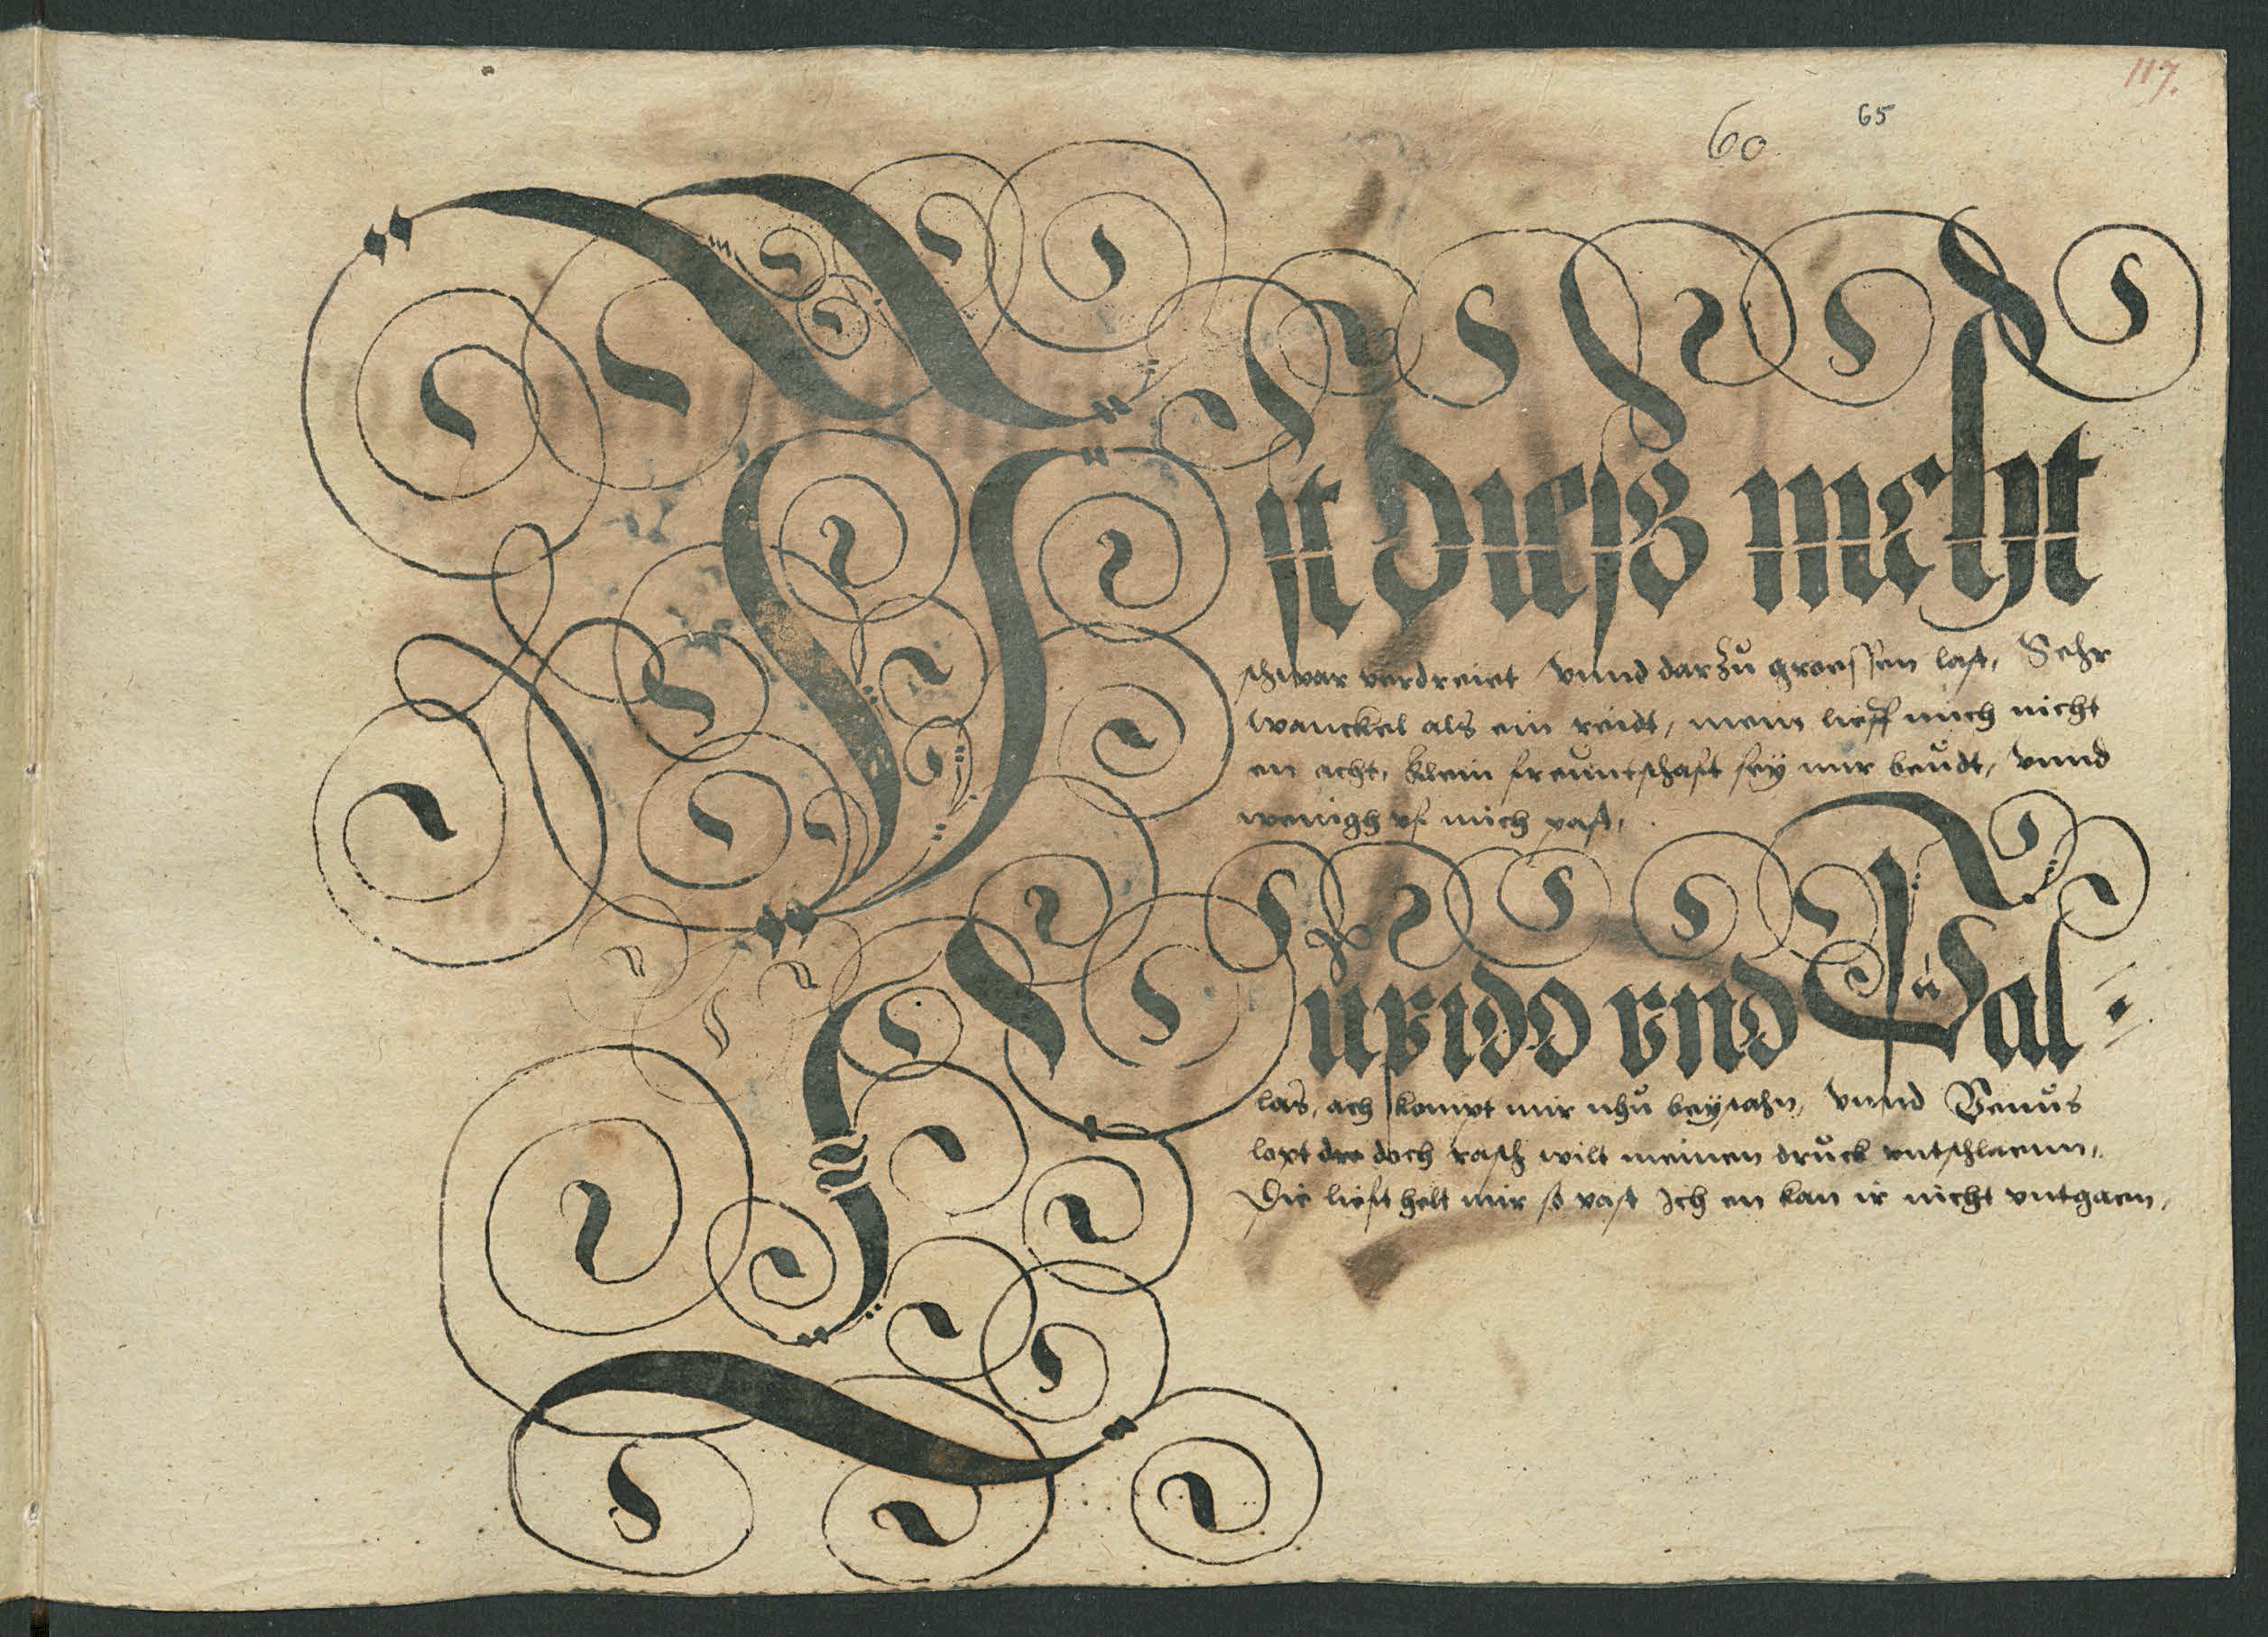 117.
60
65
Ist dieß nicht
schwar verdreiet vnnd darzu groessen last, Sehr
wanckel als ein reidt, mein lieff mich nicht
en acht, klein freuntschaft sey mir beudt, vnnd
wenigh vf mich past,
Cupido vnd Pal-
las, ach kompt mir nhu beystahn, vnnd Venus
loyt doch rasch wilt meinen druck entschlaenn,
Die lieft helt mir so vast Ich en kan ir nicht entgaen,